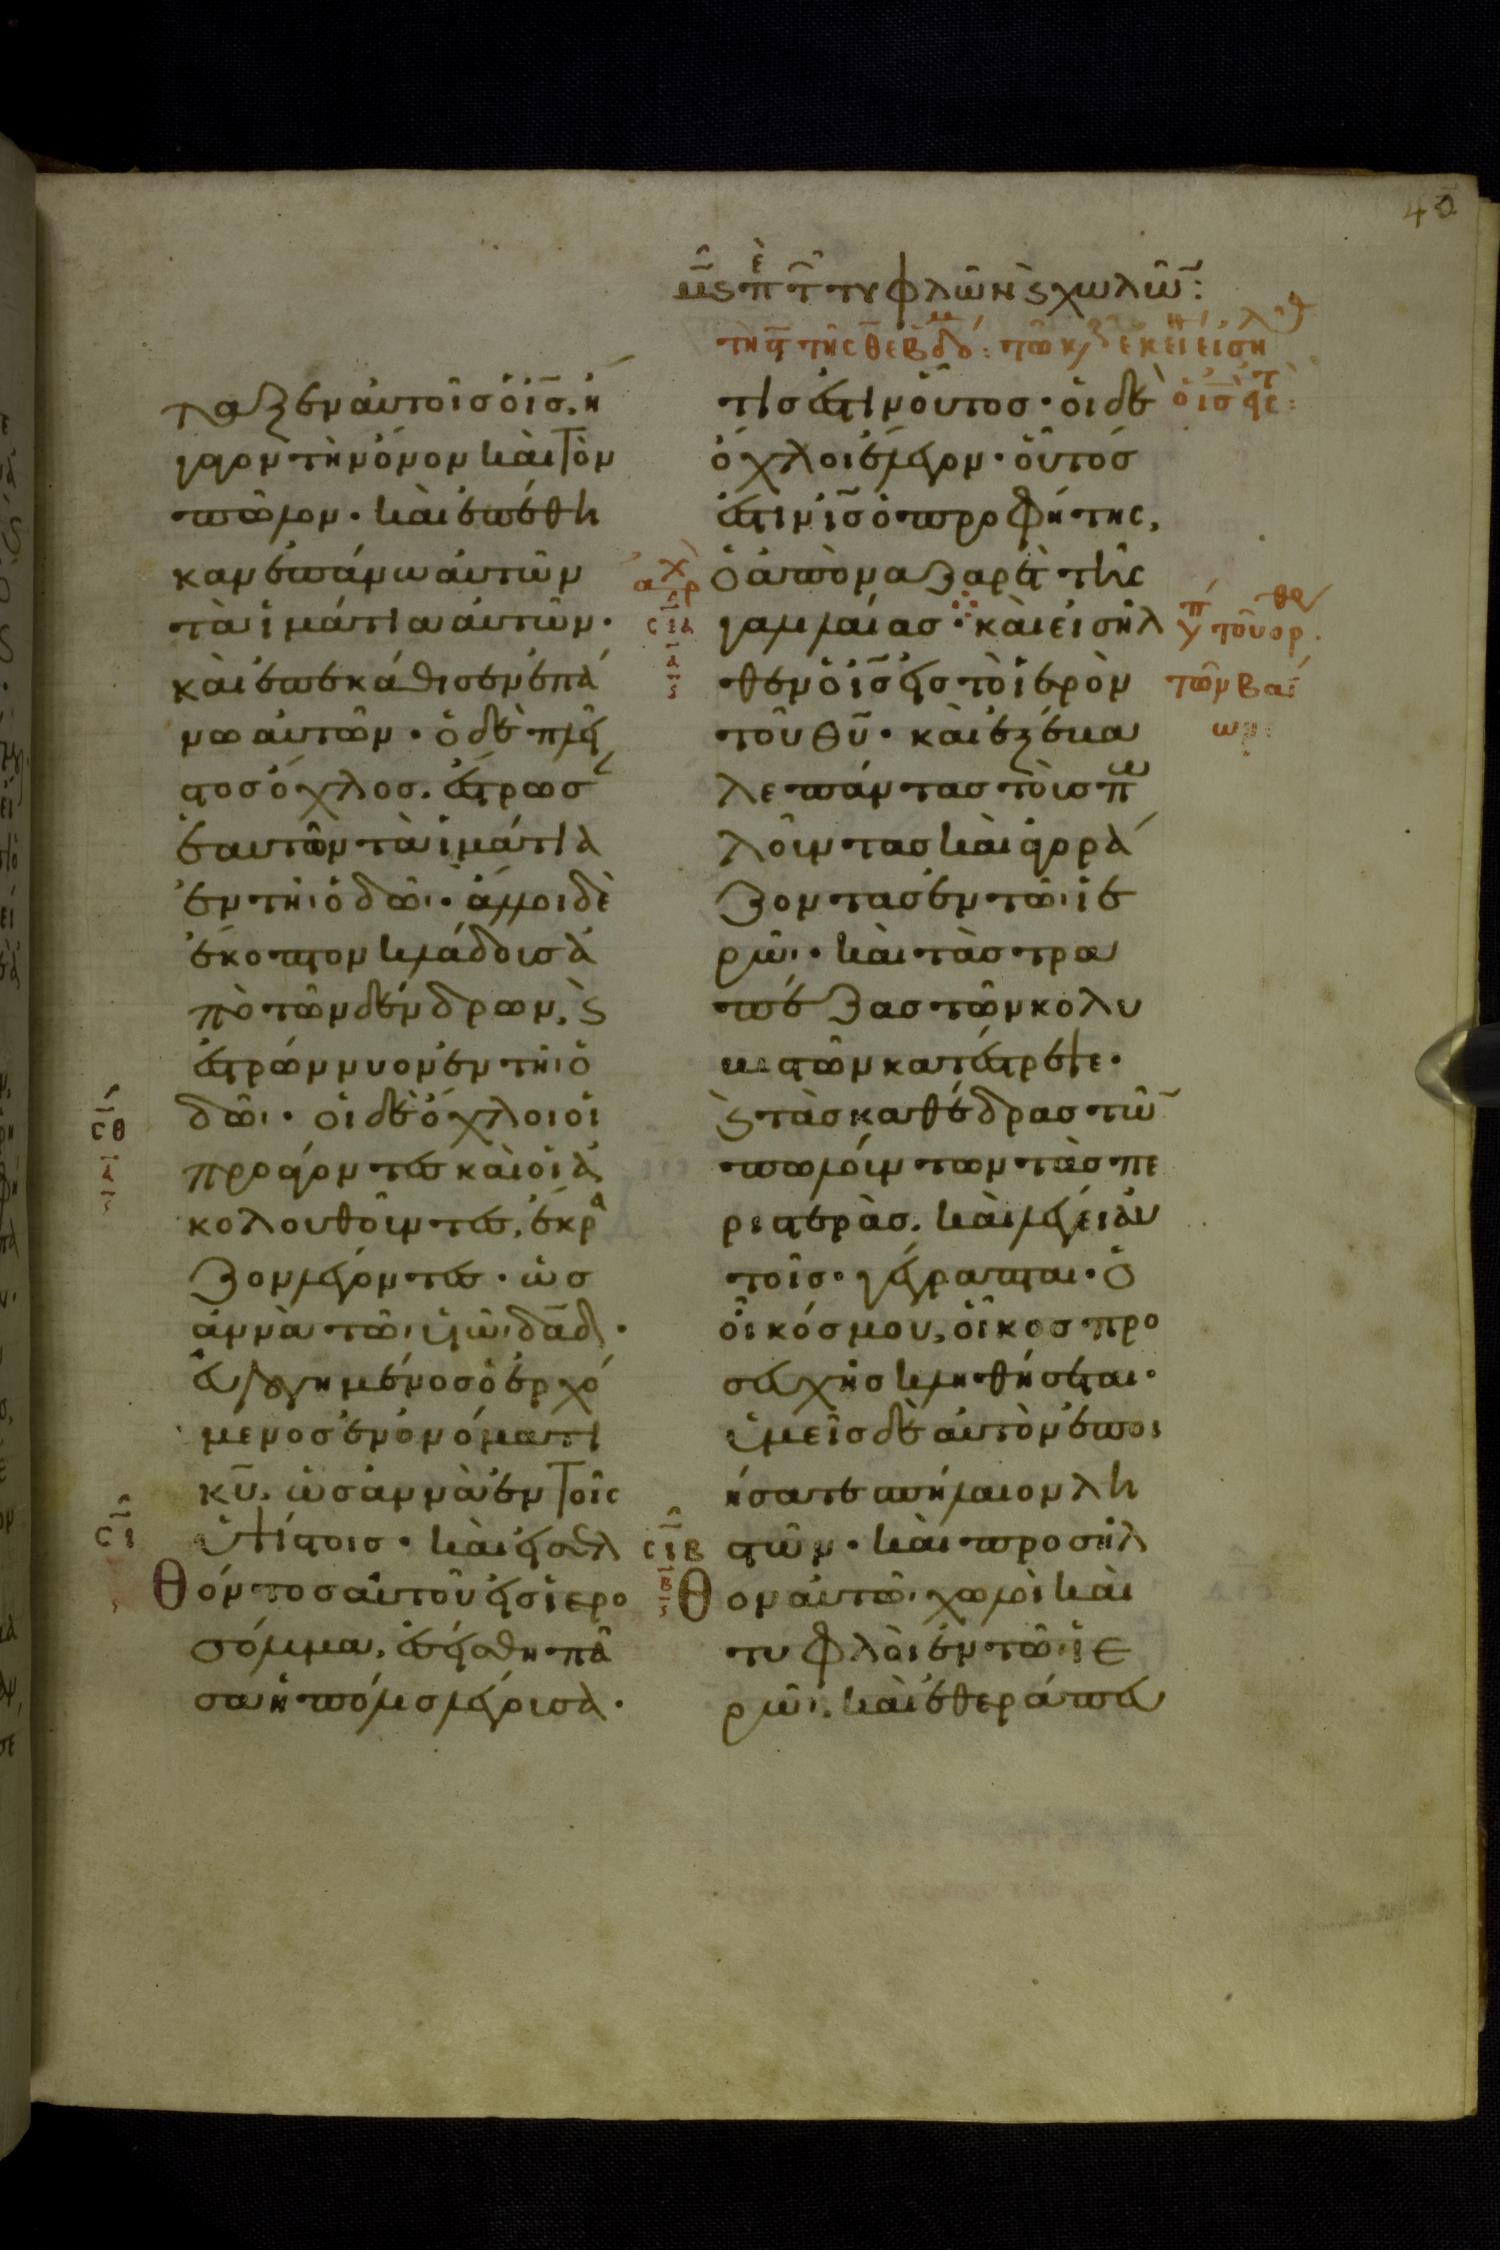 40
με επι τ τυφλῶν ϗ χωλῶν:
ταξεν αὐτοῖς ὁ ις, ἤ
γαγον τὴν ὄνον καὶ τὸν
πῶλον · καὶ ἐπέθη
καν ἐπάνω αὐτῶν
τὰ ἱμάτια αὐτῶν ·
καὶ ἐπεκάθισεν ἐπά
νω αὐτῶν · ὁ δὲ πλεῖ
στος ὄχλος, ἔστρωσαν
ἑαυτῶν τὰ ἱμάτια
ἐν τῆι ὁδῶι · ἄλλοι δὲ
ἔκοπτον κλάδους ἀ
πὸ τῶν δένδρων, ϗ
ἐστρώννυον ἐν τῆι ὁ
δῶι · οἱ δὲ ὄχλοι οἱ
προάγοντες καὶ οἱ ἀ
κολουθοῦντες, ἔκρα
ζον λέγοντες · ὡσ
αννὰ τῶι υἱῶι δαδ ·
εὐλογημένος ὁ ἐρχό
μενος ἐν ὀνόματι
κυ, ὡσαννὰ ἐν τοῖς
ὑψίστοις · καὶ εἰσελ
θόντος αὐτοῦ εἰς ἱερο
σόλυμα, ἐσείσθη πᾶ
σα ἡ πόλις λέγουσα ·
σθ
σι
τίς ἐστιν οὗτος · οἱ δὲ
ὄχλοι ἔλεγον · οὗτός
ἐστιν ις ὁ προφήτης,
ὁ ἀπὸ ναζαρὲτ τῆς
γαλιλαίας · καὶ εἰσῆλ
θεν ὁ ις εἰς τὸ ἱερὸν
τοῦ θυ · καὶ ἐξέβα
λε πάντας τοὺς πω
λοῦντας καὶ ἀγορά
ζοντας ἐν τῶι ἱε
ρῶι · καὶ τὰς τρα
πέζας τῶν κολυ
βιστῶν κατέστρεψε ·
ϗ τὰς καθέδρας τῶν
πωλούντων τὰς πε
ριστερὰς, καὶ λέγει αὐ
τοῖς · γέγραπται · ὁ
οἶκός μου, οἶκος προ
σευχῆς κληθήσεται ·
ὑμεῖς δὲ αὐτὸν ἐποι
ήσατε σπήλαιον λη
στῶν · καὶ προσῆλ
θον αὐτῶ χωλοὶ καὶ
τυφλοὶ ἐν τῶι ἱε
ρῶι, καὶ ἐθεράπευ
σια
σιβ